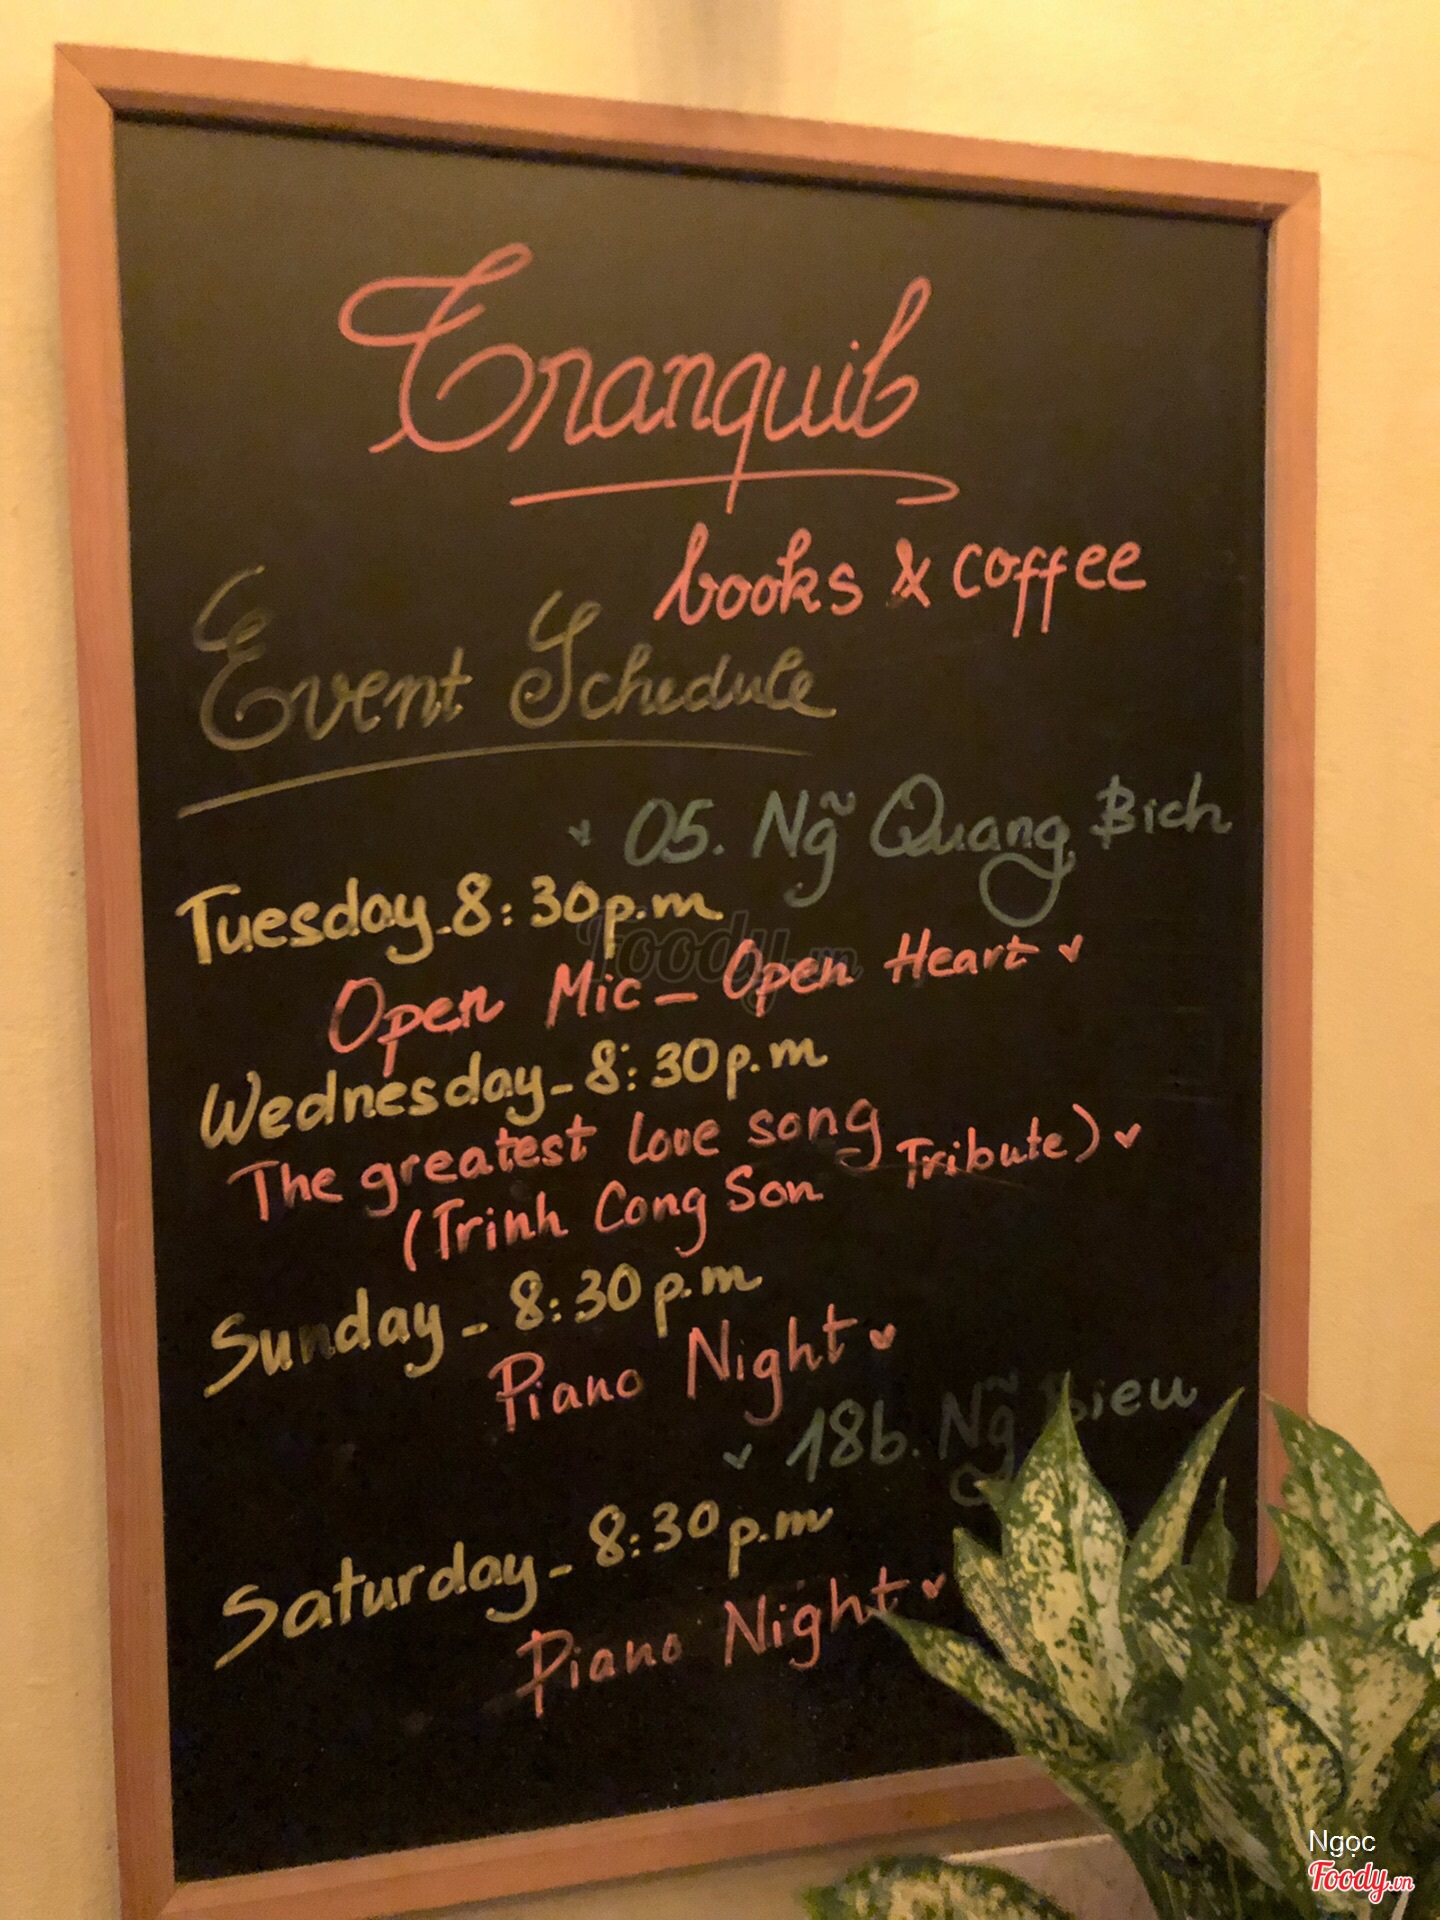 Tranquil
books & coffee
Event Schedule
05. Ng̃ Quang Bich
Tuesday - 8:30 p.m
Open Mic - Open Heart
Wednesday - 8:30 p.m
The greatest love song
(Trinh Cong Son Tribute)
Sunday - 8:30 p.m
Piano Night
18b. Ng̃ Bieu
Saturday - 8:30 p.m
Piano Night
Foody.vn
Ngọc
Foody.vn